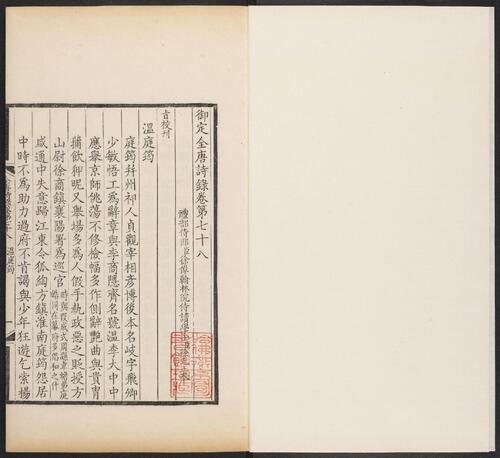 御定全唐詩錄卷第七十八
禮部侍郎臣徐倬翰林院侍讀學士臣徐元正奉
旨校刊
溫庭筠
庭筠幷州祁人貞觀宰相彥博後本名岐字飛卿
少敏悟工爲辭章與李商隱齊名號溫李大中中
應舉京師佻蕩不修檢幅多作側辭艷曲與貴冑
蒱飲狎昵又舉場多爲人假手執政惡之貶授方
山尉徐商鎭襄陽署爲巡官
咸通中失意歸江東令狐綯方鎭淮南庭筠怨居
中時不爲助力過府不肯謁與少年狂遊乞索楊
溫庭筠